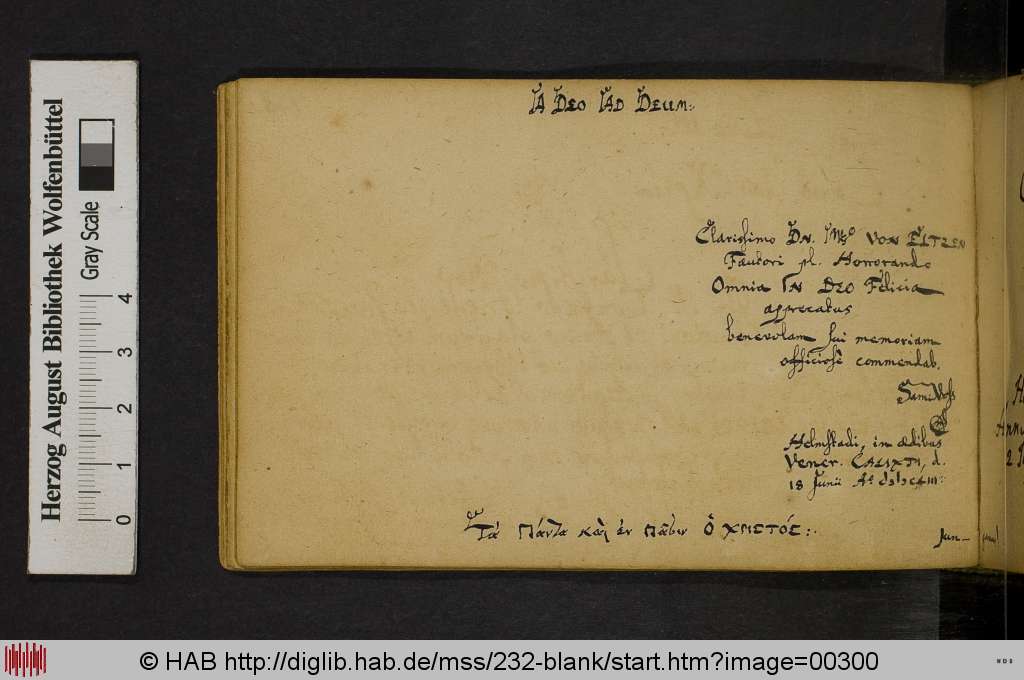 A DEO AD DEUM:
Clarissimo DN. VON EITZEN
Fautori pl. Honorando
Omnia IN DEO Felicia
apprecatus
benevolam sui memoriam
officiosè commendab.
Sam: Voss
Helmstadi, in ædibus
Vener. CALIXTI, d.
18 Junii Aº
Τὰ Πάντα καὶ ἐν πᾶσιν Ὁ ΧΡΙΣΤΌΣ:
Herzog August Bibliothek Wolfenbüttel
Gray Scale
0 1 2 3 4
© HAB http://diglib.hab.de/mss/232-blank/start.htm?image=00300